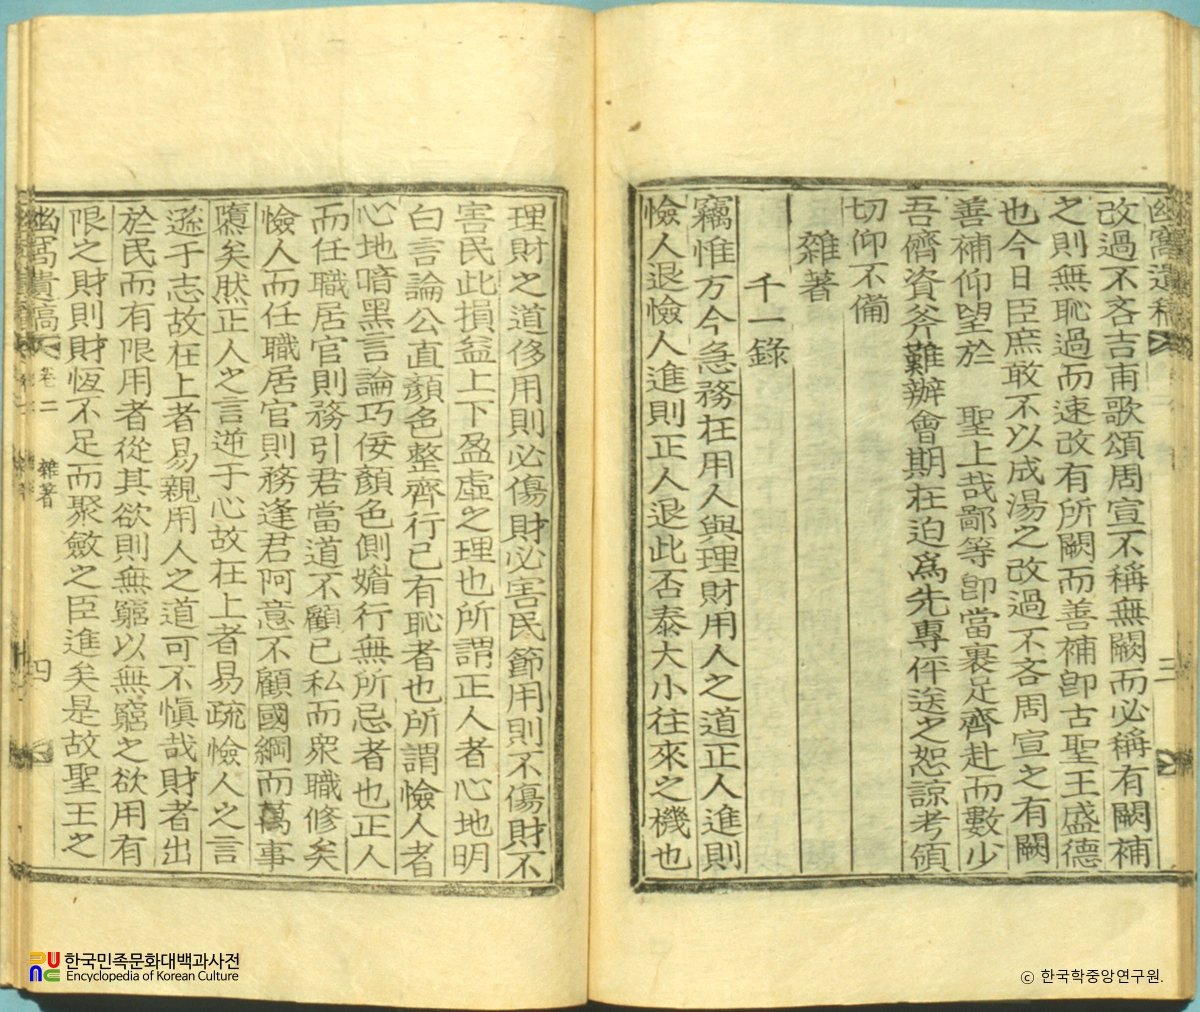 幽窩遺稿
三
改過不吝吉甫歌頌周宣不稱無闕而必稱有闕補
之則無恥過而速改有所闕而善補卽古聖王盛德
也今日臣庶敢不以成湯之改過不吝周宣之有闕
善補仰望於 聖上哉鄙等卽當裹足齊赴而數少
吾儕資斧難辦會期在迫爲先專伻送之恕諒考領
切仰不備
雜著
千一錄
竊惟方今急務在用人與理財用人之道正人進則
憸人退憸人進則正人退此否泰大小往來之機也
理財之道侈用則必傷財必害民節用則不傷財不
害民此損益上下盈虛之理也所謂正人者心地明
白言論公直顏色整齊行已有恥者也所謂憸人者
心地暗黑言論巧佞顏色側媚行無所忌者也正人
而任職居官則務引君當道不顧已私而衆職修矣
憸人而任職居官則務逢君阿意不顧國綱而萬事
隳矣然正人之言逆于心故在上者易疏憸人之言
遜于志故在上者易親用人之道可不愼哉財者出
於民而有限用者從其欲則無窮以無窮之欲用有
限之財則財恆不足而聚斂之臣進矣是故聖王之
幽窩遺稿 卷二 雜著 四
한국민족문화대백과사전
Encyclopedia of Korean Culture
ⓒ 한국학중앙연구원.